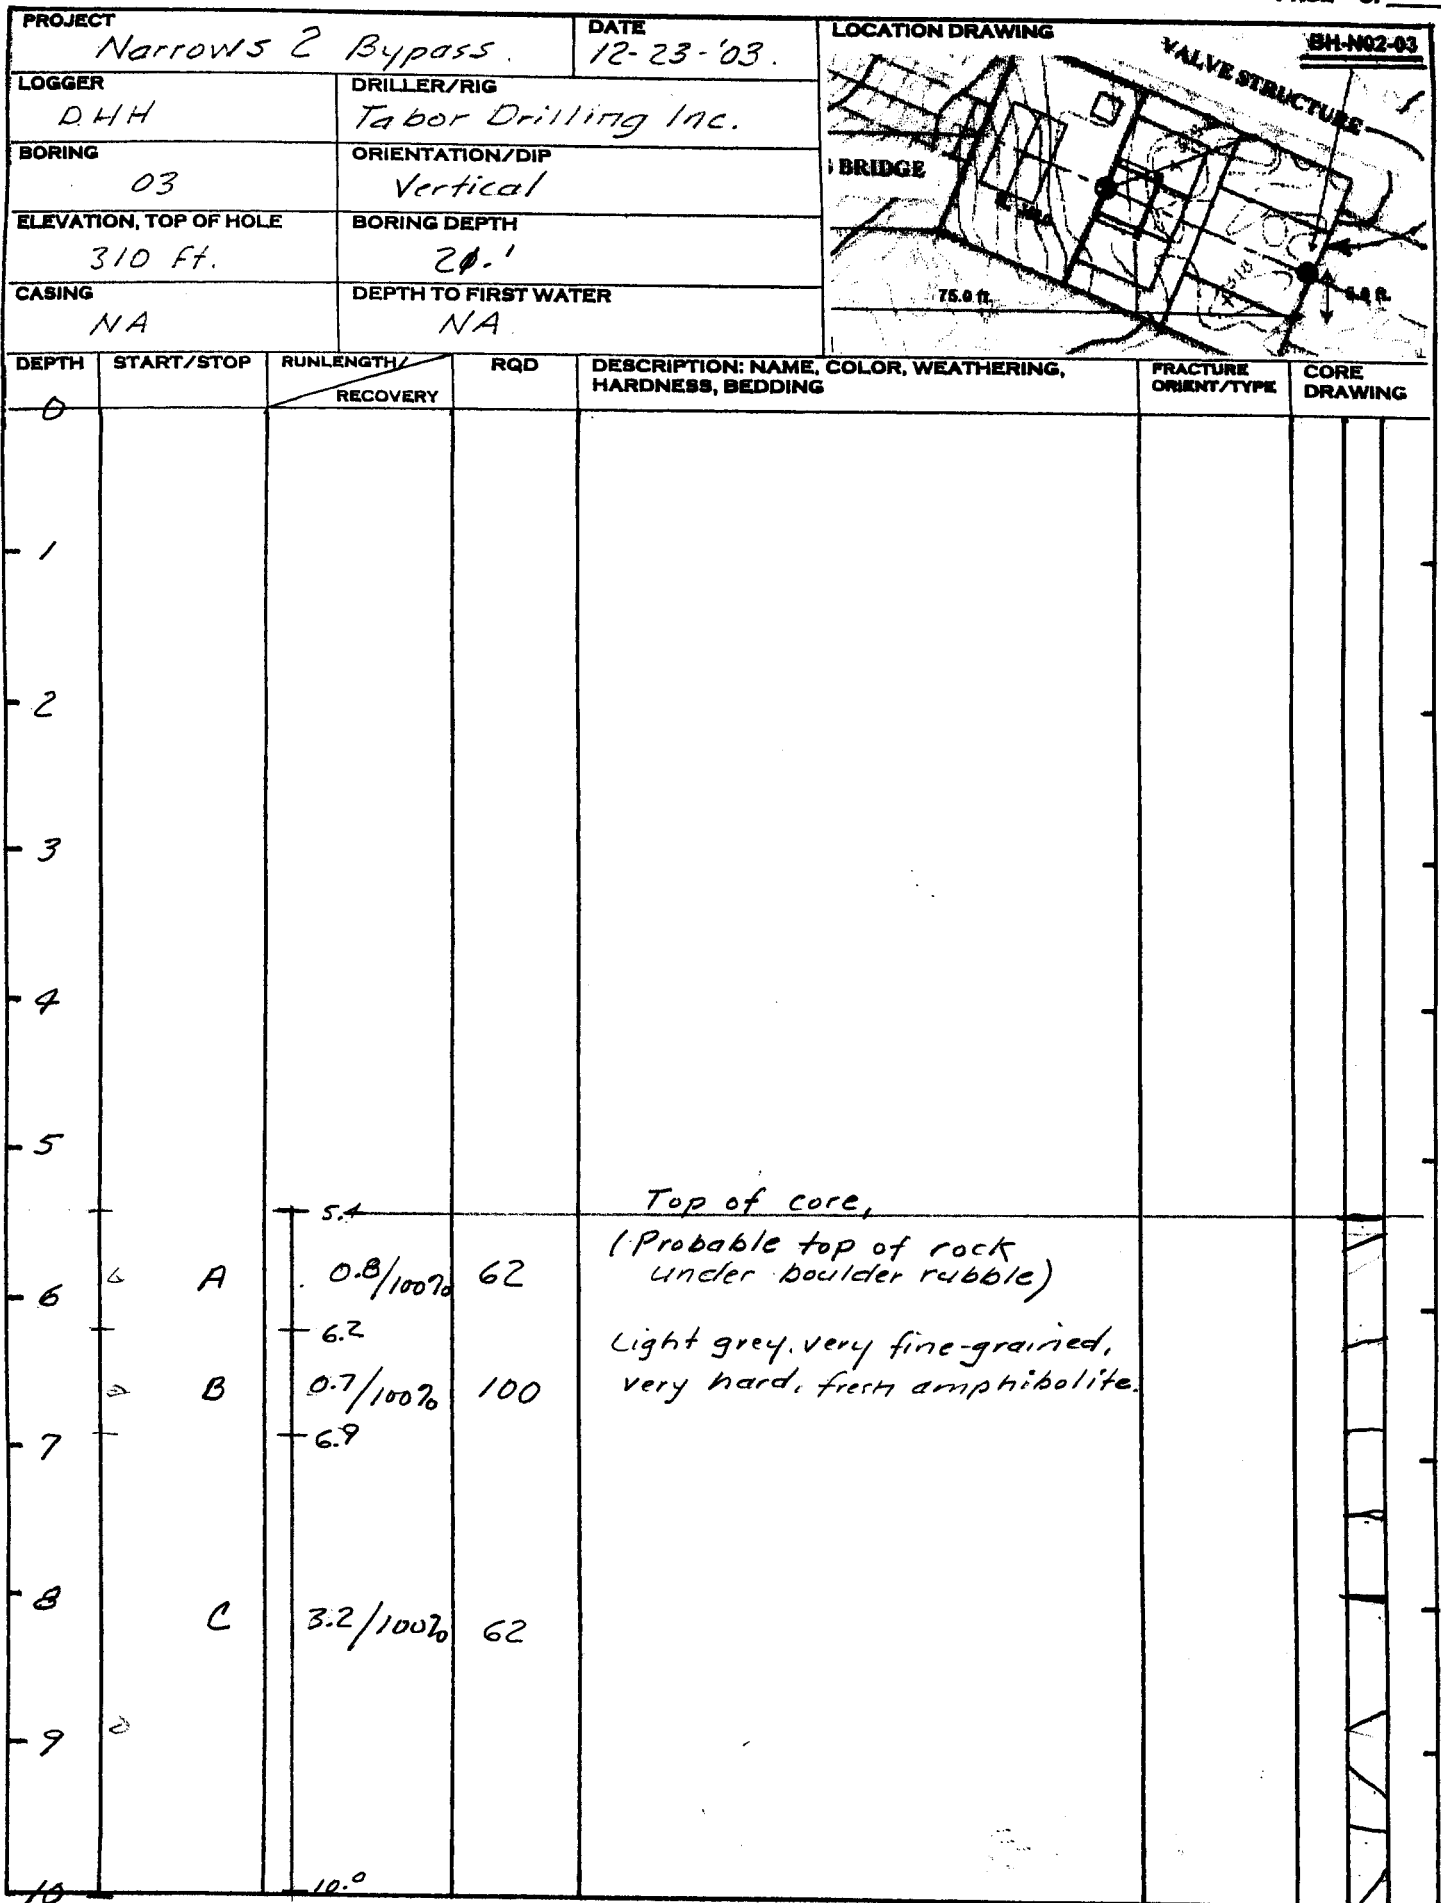 PROJECT
Narrows 2 Bypass.
DATE
12-23-'03.
LOCATION DRAWING
BH-N02-03
VALVE STRUCTURE
BRIDGE
75.0 ft.
LOGGER
D.H.H
DRILLER/RIG
Tabor Drilling Inc.
BORING
03
ORIENTATION/DIP
Vertical
ELEVATION, TOP OF HOLE
310 ft.
BORING DEPTH
CASING
NA
DEPTH TO FIRST WATER
NA
DEPTH START/STOP RUNLENGTH/ RECOVERY RQD DESCRIPTION: NAME, COLOR, WEATHERING, HARDNESS, BEDDING FRACTURE ORIENT/TYPE CORE DRAWING
0
1
2
3
4
5
5.4 Top of core,
(Probable top of rock
A 0.8/100% 62 under boulder rubble)
6
6.2 Light grey, very fine-grained,
B 0.7/100% 100 very hard, fresh amphibolite.
7 6.9
8
C 3.2/100% 62
9
10 10.0